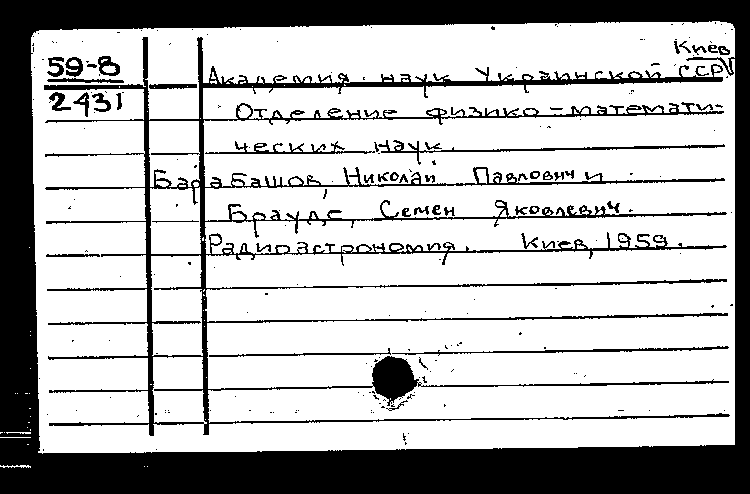 Киев
59-8 Академия наук Украинской ССР
2431 Отделение физико-математи-
ческих наук.
Барабашов, Николай Павлович и
Брауде, Семен Яковлевич.
Радиоастрономия. Киев, 1959.